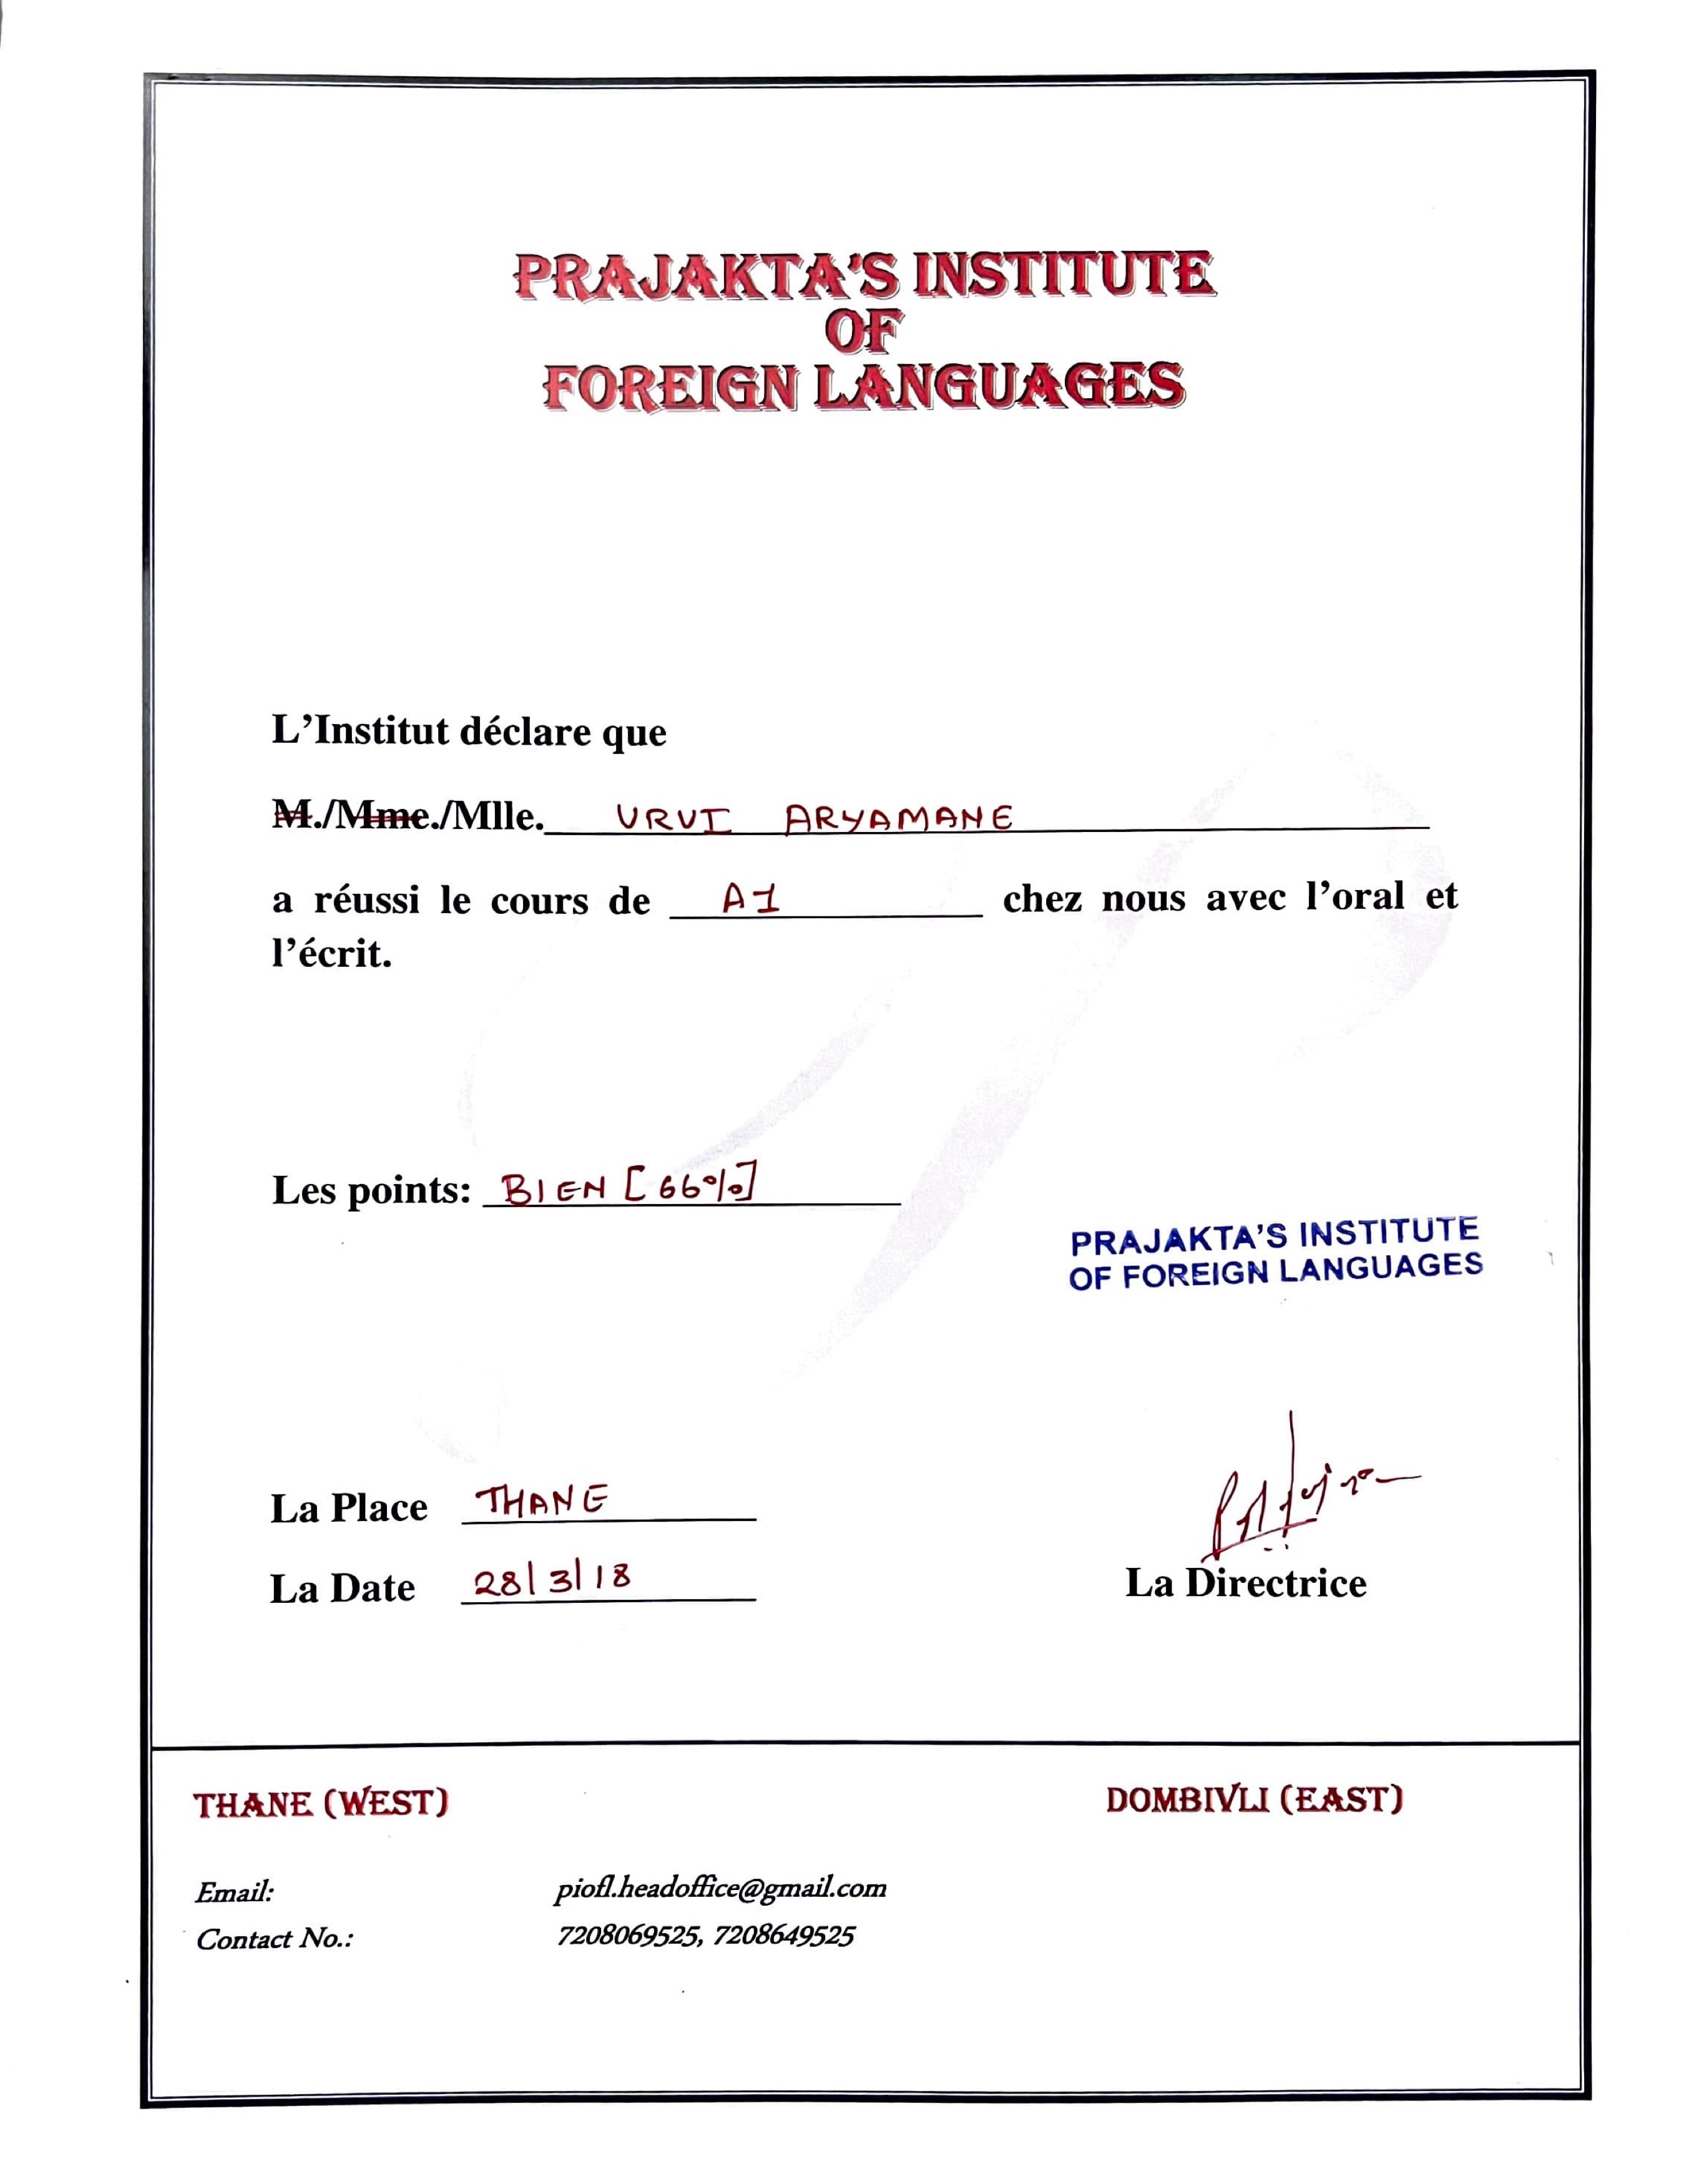 PRAJAKTA'S INSTITUTE
OF
FOREIGN LANGUAGES
L'Institut déclare que
M./Mme./Mlle. URVI ARYAMANE
a réussi le cours de A1 chez nous avec l'oral et
l'écrit.
Les points: BIEN [66%]
PRAJAKTA'S INSTITUTE
OF FOREIGN LANGUAGES
La Place THANE
La Date 28/3/18
La Directrice
THANE (WEST)
DOMBIVLI (EAST)
Email: piofl.headoffice@gmail.com
Contact No.: 7208069525, 7208649525